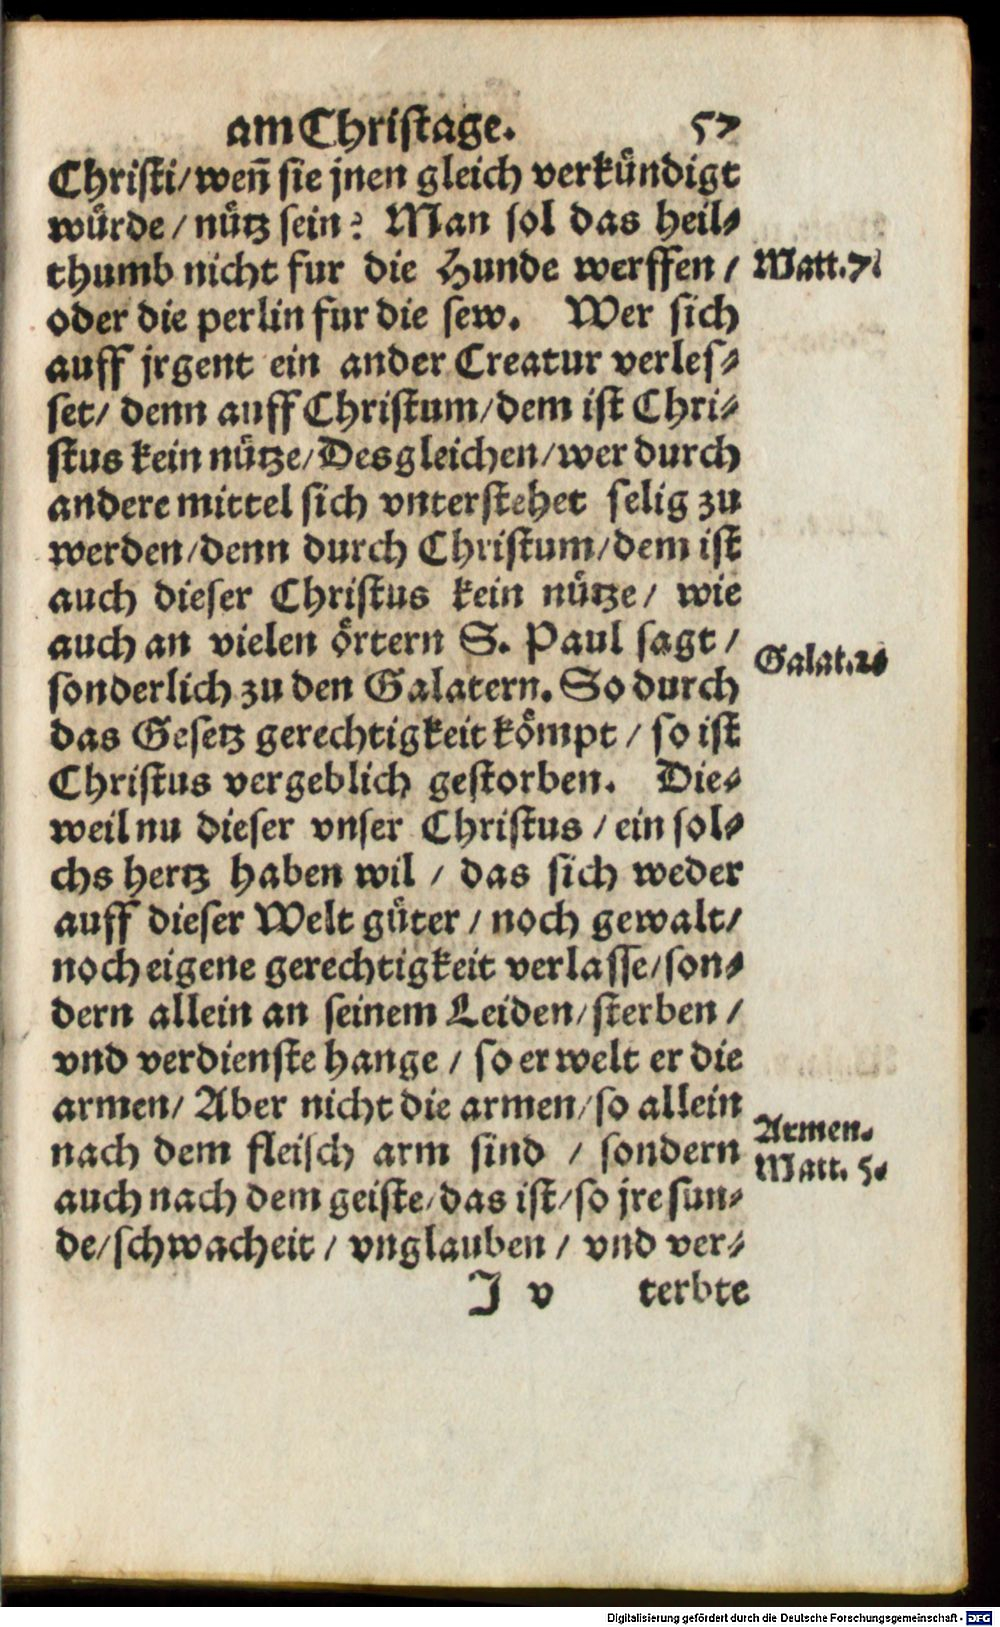 am Christage. 57
Christi/weñ sie jnen gleich verkündigt
würde/nütz sein? Man sol das heil⸗
thumb nicht fur die Hunde werffen/
Matt.7.
oder die perlin fur die sew. Wer sich
auff jrgent ein ander Creatur verles⸗
set/ denn auff Christum/dem ist Chri⸗
stus kein nütze/Desgleichen/wer durch
andere mittel sich vnterstehet selig zu
werden/denn durch Christum/dem ist
auch dieser Christus kein nütze/ wie
auch an vielen örtern S. Paul sagt/
Galat.2.
sonderlich zu den Galatern. So durch
das Gesetz gerechtigkeit kömpt/so ist
Christus vergeblich gestorben. Die⸗
weil nu dieser vnser Christus/ein sol⸗
chs hertz haben wil/ das sich weder
auff dieser Welt güter/noch gewalt/
noch eigene gerechtigkeit verlasse/son⸗
dern allein an seinem Leiden/sterben/
vnd verdienste hange/so erwelt er die
armen/ Aber nicht die armen/so allein
Armen.
nach dem fleisch arm sind / sondern
Matt. 5.
auch nach dem geiste/das ist/so jre sun⸗
de/schwacheit/ vnglauben/ vnd ver⸗
J v terbte
Digitalisierung gefördert durch die Deutsche Forschungsgemeinschaft - DFG